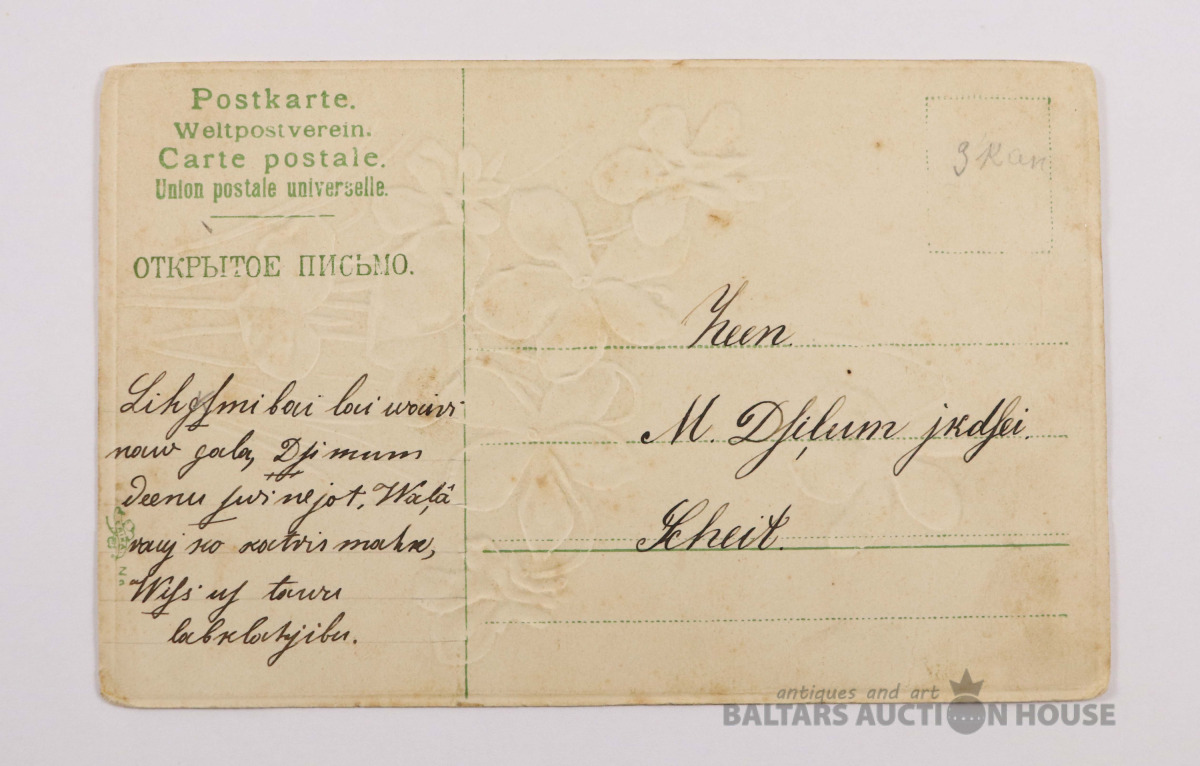 Postkarte.
Weltpostverein.
Carte postale.
Union postale universelle.
ОТКРЫТОЕ ПИСЬМО.
3 Kan
Lihgsmibai lai waivi
naw gala, Dsimum
deenu swinejot. Waļâ
rauj ko katris mahk,
Wiss us tawu
labklahjibu.
M. Dsiļum jkdsei.
Scheit.
antiques and art
BALTARS AUCTION HOUSE